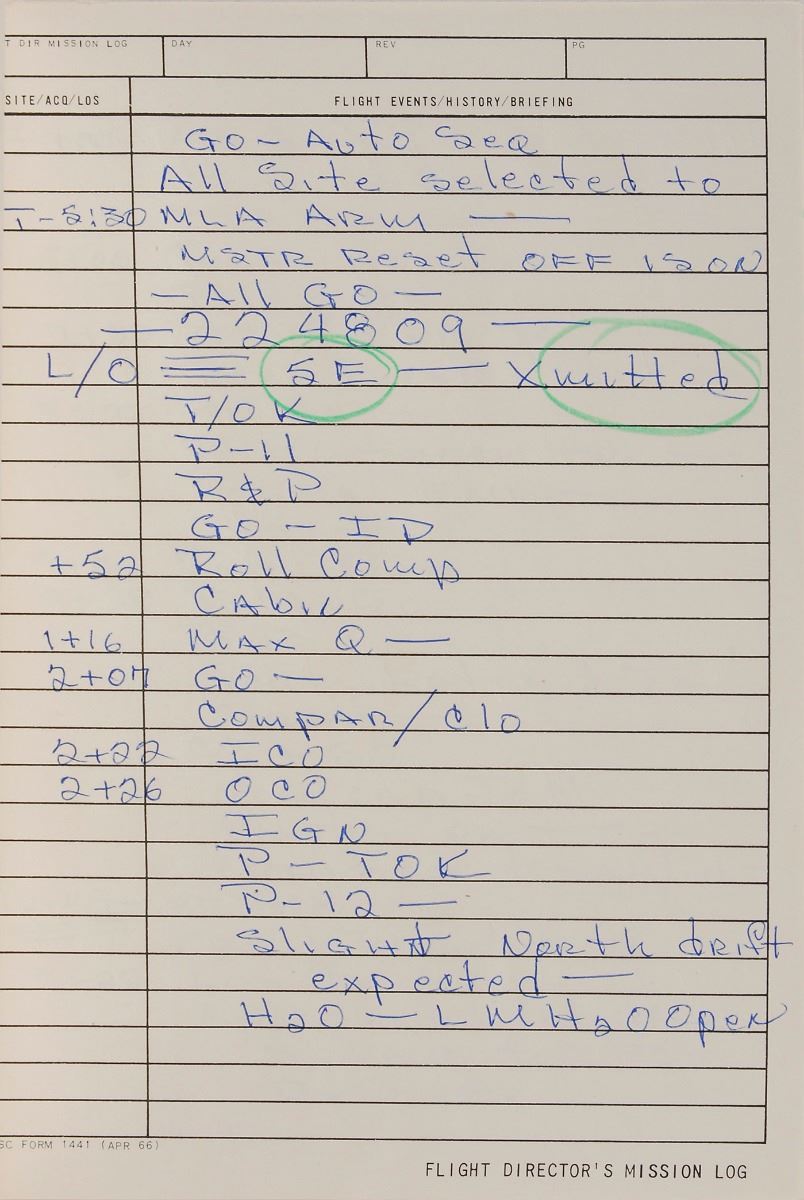 T DIR MISSION LOG DAY REV PG
SITE/ACQ/LOS FLIGHT EVENTS/HISTORY/BRIEFING
GO - Auto Seq
All Site selected to
T-5:30 MLA ARM —
MSTR Reset OFF IS ON
- All GO -
— 224809 —
L/O SE — Xmitted
T/OK
P-11
R&P
GO - ID
+52 Roll Comp
CAbin
1+16 MAX Q —
2+07 GO —
Compar/clo
2+22 ICO
2+26 OCO
IGN
P - TOK
P-12 —
Slight North drift
expected —
H2O - LM H2O Open
SC FORM 1441 (APR 66)
FLIGHT DIRECTOR'S MISSION LOG